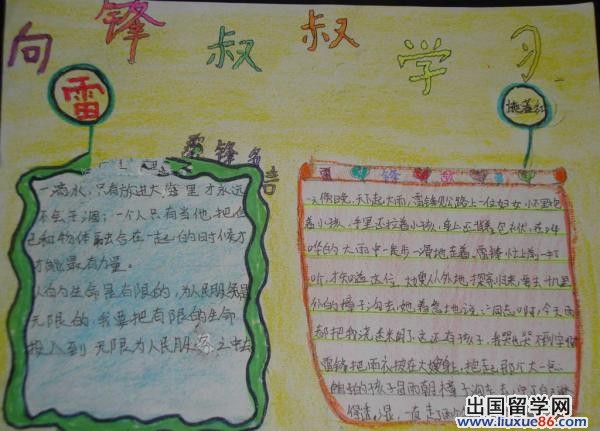 向雷锋叔叔学习
雷锋名
言
一滴水,只有放进大海里才永远
不会干涸;一个人只有当他把自
己和物体融合在一起的时候才
才能最有力量。
人的生命是有限的,为人民服务是
无限的我要把有限的生命
投入到无限为人民服务之中去
雷锋故
一天傍晚,天下起大雨,雷锋见公路上一位妇女怀里包
着小孩,手里还拉着小孩,身上还背着包衣伏,在哗
哗的大雨中一走步一滑地走着。雷锋忙上前一打
听,才知道这位大嫂从外地探亲归来,要去十几里
外的樟子沟去,她着急地说:“同志啊,今天雨
都把我浇迷糊了,这还有孩子,我哭也哭不到家
雷锋把雨衣披在大嫂身上,抱起那个大一点
的孩子冒雨朝樟子沟走去
一直走了两
出国留学网
www.liuxue86.com